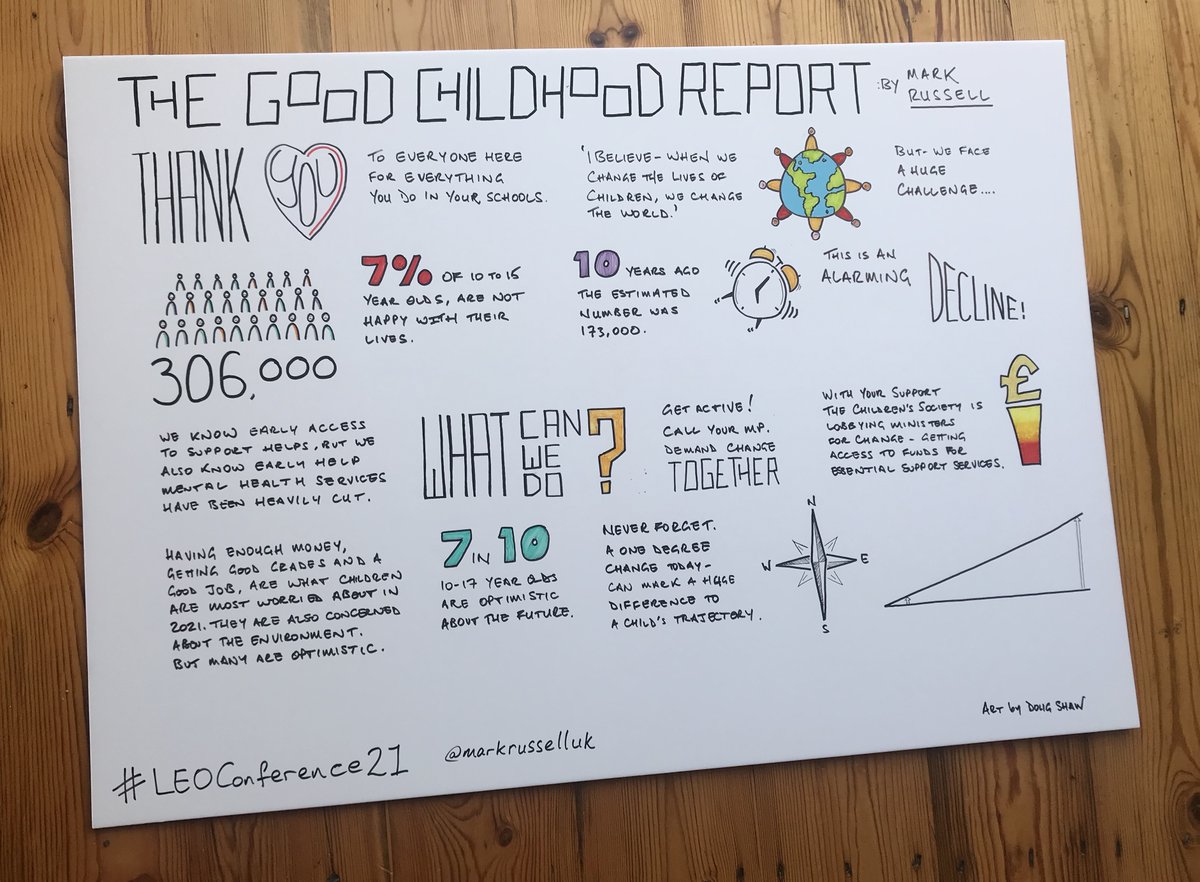 THE GOOD CHILDHOOD REPORT :BY MARK
RUSSELL
THANK YOU
TO EVERYONE HERE
FOR EVERYTHING
YOU DO IN YOUR SCHOOLS.
'I BELIEVE - WHEN WE
CHANGE THE LIVES OF
CHILDREN, WE CHANGE
THE WORLD.'
BUT - WE FACE
A HUGE
CHALLENGE....
306,000
7% OF 10 TO 15
YEAR OLDS, ARE NOT
HAPPY WITH THEIR
LIVES.
10 YEARS AGO
THE ESTIMATED
NUMBER WAS
173,000.
THIS IS AN
ALARMING
DECLINE!
WE KNOW EARLY ACCESS
TO SUPPORT HELPS, BUT WE
ALSO KNOW EARLY HELP
MENTAL HEALTH SERVICES
HAVE BEEN HEAVILY CUT.
WHAT CAN
WE
DO ?
GET ACTIVE!
CALL YOUR MP.
DEMAND CHANGE
TOGETHER
WITH YOUR SUPPORT
THE CHILDREN'S SOCIETY IS
LOBBYING MINISTERS
FOR CHANGE - GETTING
ACCESS TO FUNDS FOR
ESSENTIAL SUPPORT SERVICES.
£
HAVING ENOUGH MONEY,
GETTING GOOD GRADES AND A
GOOD JOB, ARE WHAT CHILDREN
ARE MOST WORRIED ABOUT IN
2021. THEY ARE ALSO CONCERNED
ABOUT THE ENVIRONMENT.
BUT MANY ARE OPTIMISTIC.
7 IN 10
10-17 YEAR OLDS
ARE OPTIMISTIC
ABOUT THE FUTURE.
NEVER FORGET.
A ONE DEGREE
CHANGE TODAY -
CAN MARK A HUGE
DIFFERENCE TO
A CHILD'S TRAJECTORY.
N
W E
S
ART by DOUG SHAW
#LEOConference21
@markrusselluk